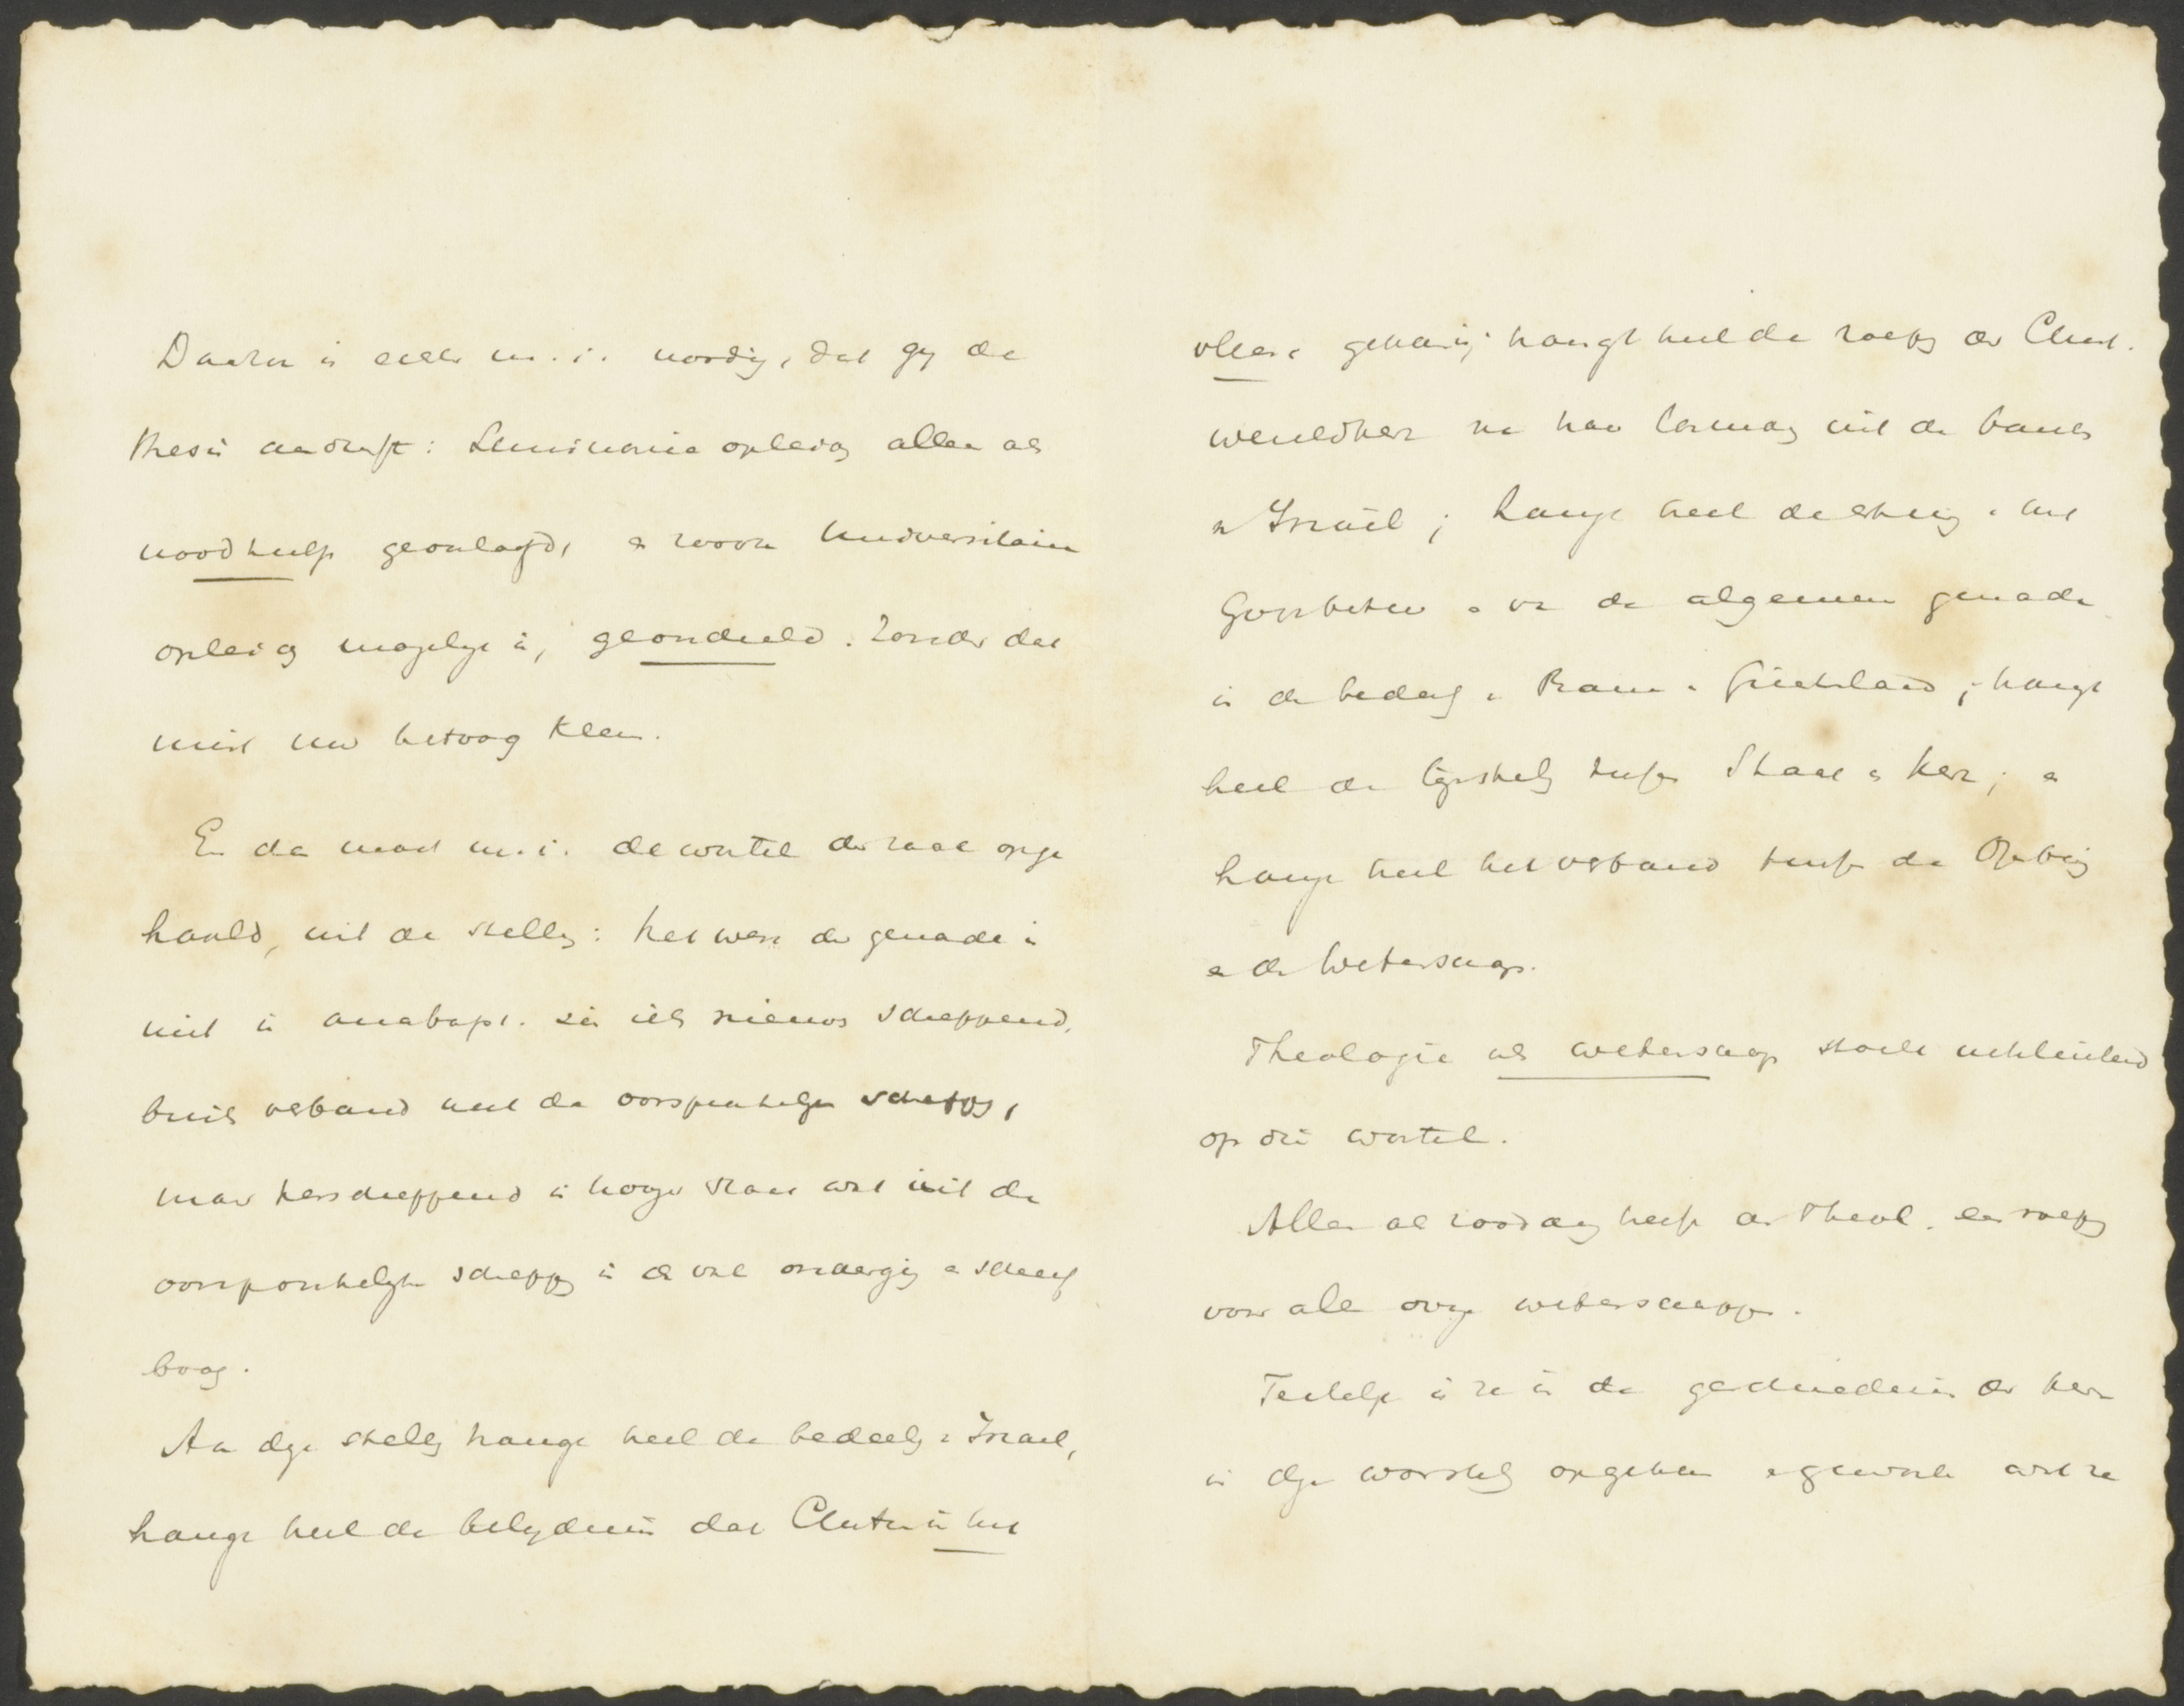 Daartoe is echter m.i. noodig, dat gy de
thesis aandurft: Seminarie opleidg alleen als
noodhulp geoorlaofd, en waar Universitaire
opleidg mogelyk is, geoordeeld. Zonder dat
mist uw betoog klem.
En dan moet m.i. de wortel der zaak opge
haald, uit de stellg: het werk der genade is
niet in anabapt. zin iets nieuws scheppend,
buiten verband met de oorspronkelyke scheppg,
maar herscheppend in hooger staat wat uit de
oorspronkelyke scheppg in de val onderging en scheef
boog.
Aan deze stellg hangt heel de bedeelg v Israel,
hangt heel de belydenis dat Christus in het
vleesch gekomen is; hangt heel de roepg der Christ.
wereldkerk na haar losmakg uit de banden
v Israël; hangt heel de
Godsbestuur en van de algemeene genade
in de bedeelg v Rome en Griekenland; hangt
heel de tegenstellg tusschen Staat en Kerk; en
hangt heel het verband tusschen de Openbarg
en de Wetenschap.
Theologie als wetenschap stoelt uitsluitend
op dien wortel.
Alleen als zoodanig heeft de Theol. een roepg
voor alle overige wetenschappen.
Feitelyk is ze in de geschiedenis der kerk
in deze worstelg opgekomen en geworden wat ze